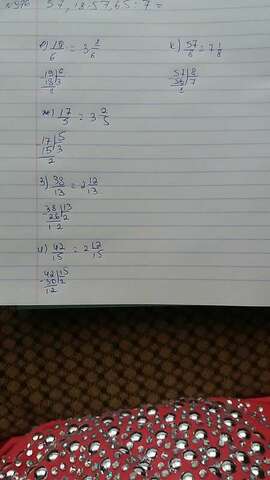 57,18:57,65:7=
е) 19/6 = 3 1/6
к) 57/8 = 7 1/8
19|6
18|3
1
57|8
56|7
1
ж) 17/5 = 3 2/5
17|5
15|3
2
з) 38/13 = 2 12/13
38|13
26|2
12
и) 42/15 = 2 12/15
42|15
30|2
12